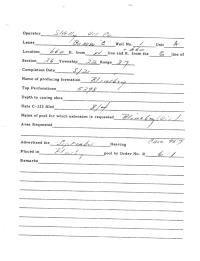 Operator Skelly Oil Co
Lease Well No. 1 Unit A
Location 660 ft. from N line and ft. from the E line of
Section 26 Township 22 Range 37
Completion Date 8/21
Name of producing formation Blinebry
Top Perforations 5298
Depth to casing shoe
Date C-123 filed 8/4
Name of pool for which extension is requested Blinebry
Area Requested
Advertised for September Hearing Case 967
Placed in pool by Order No. R
Remarks